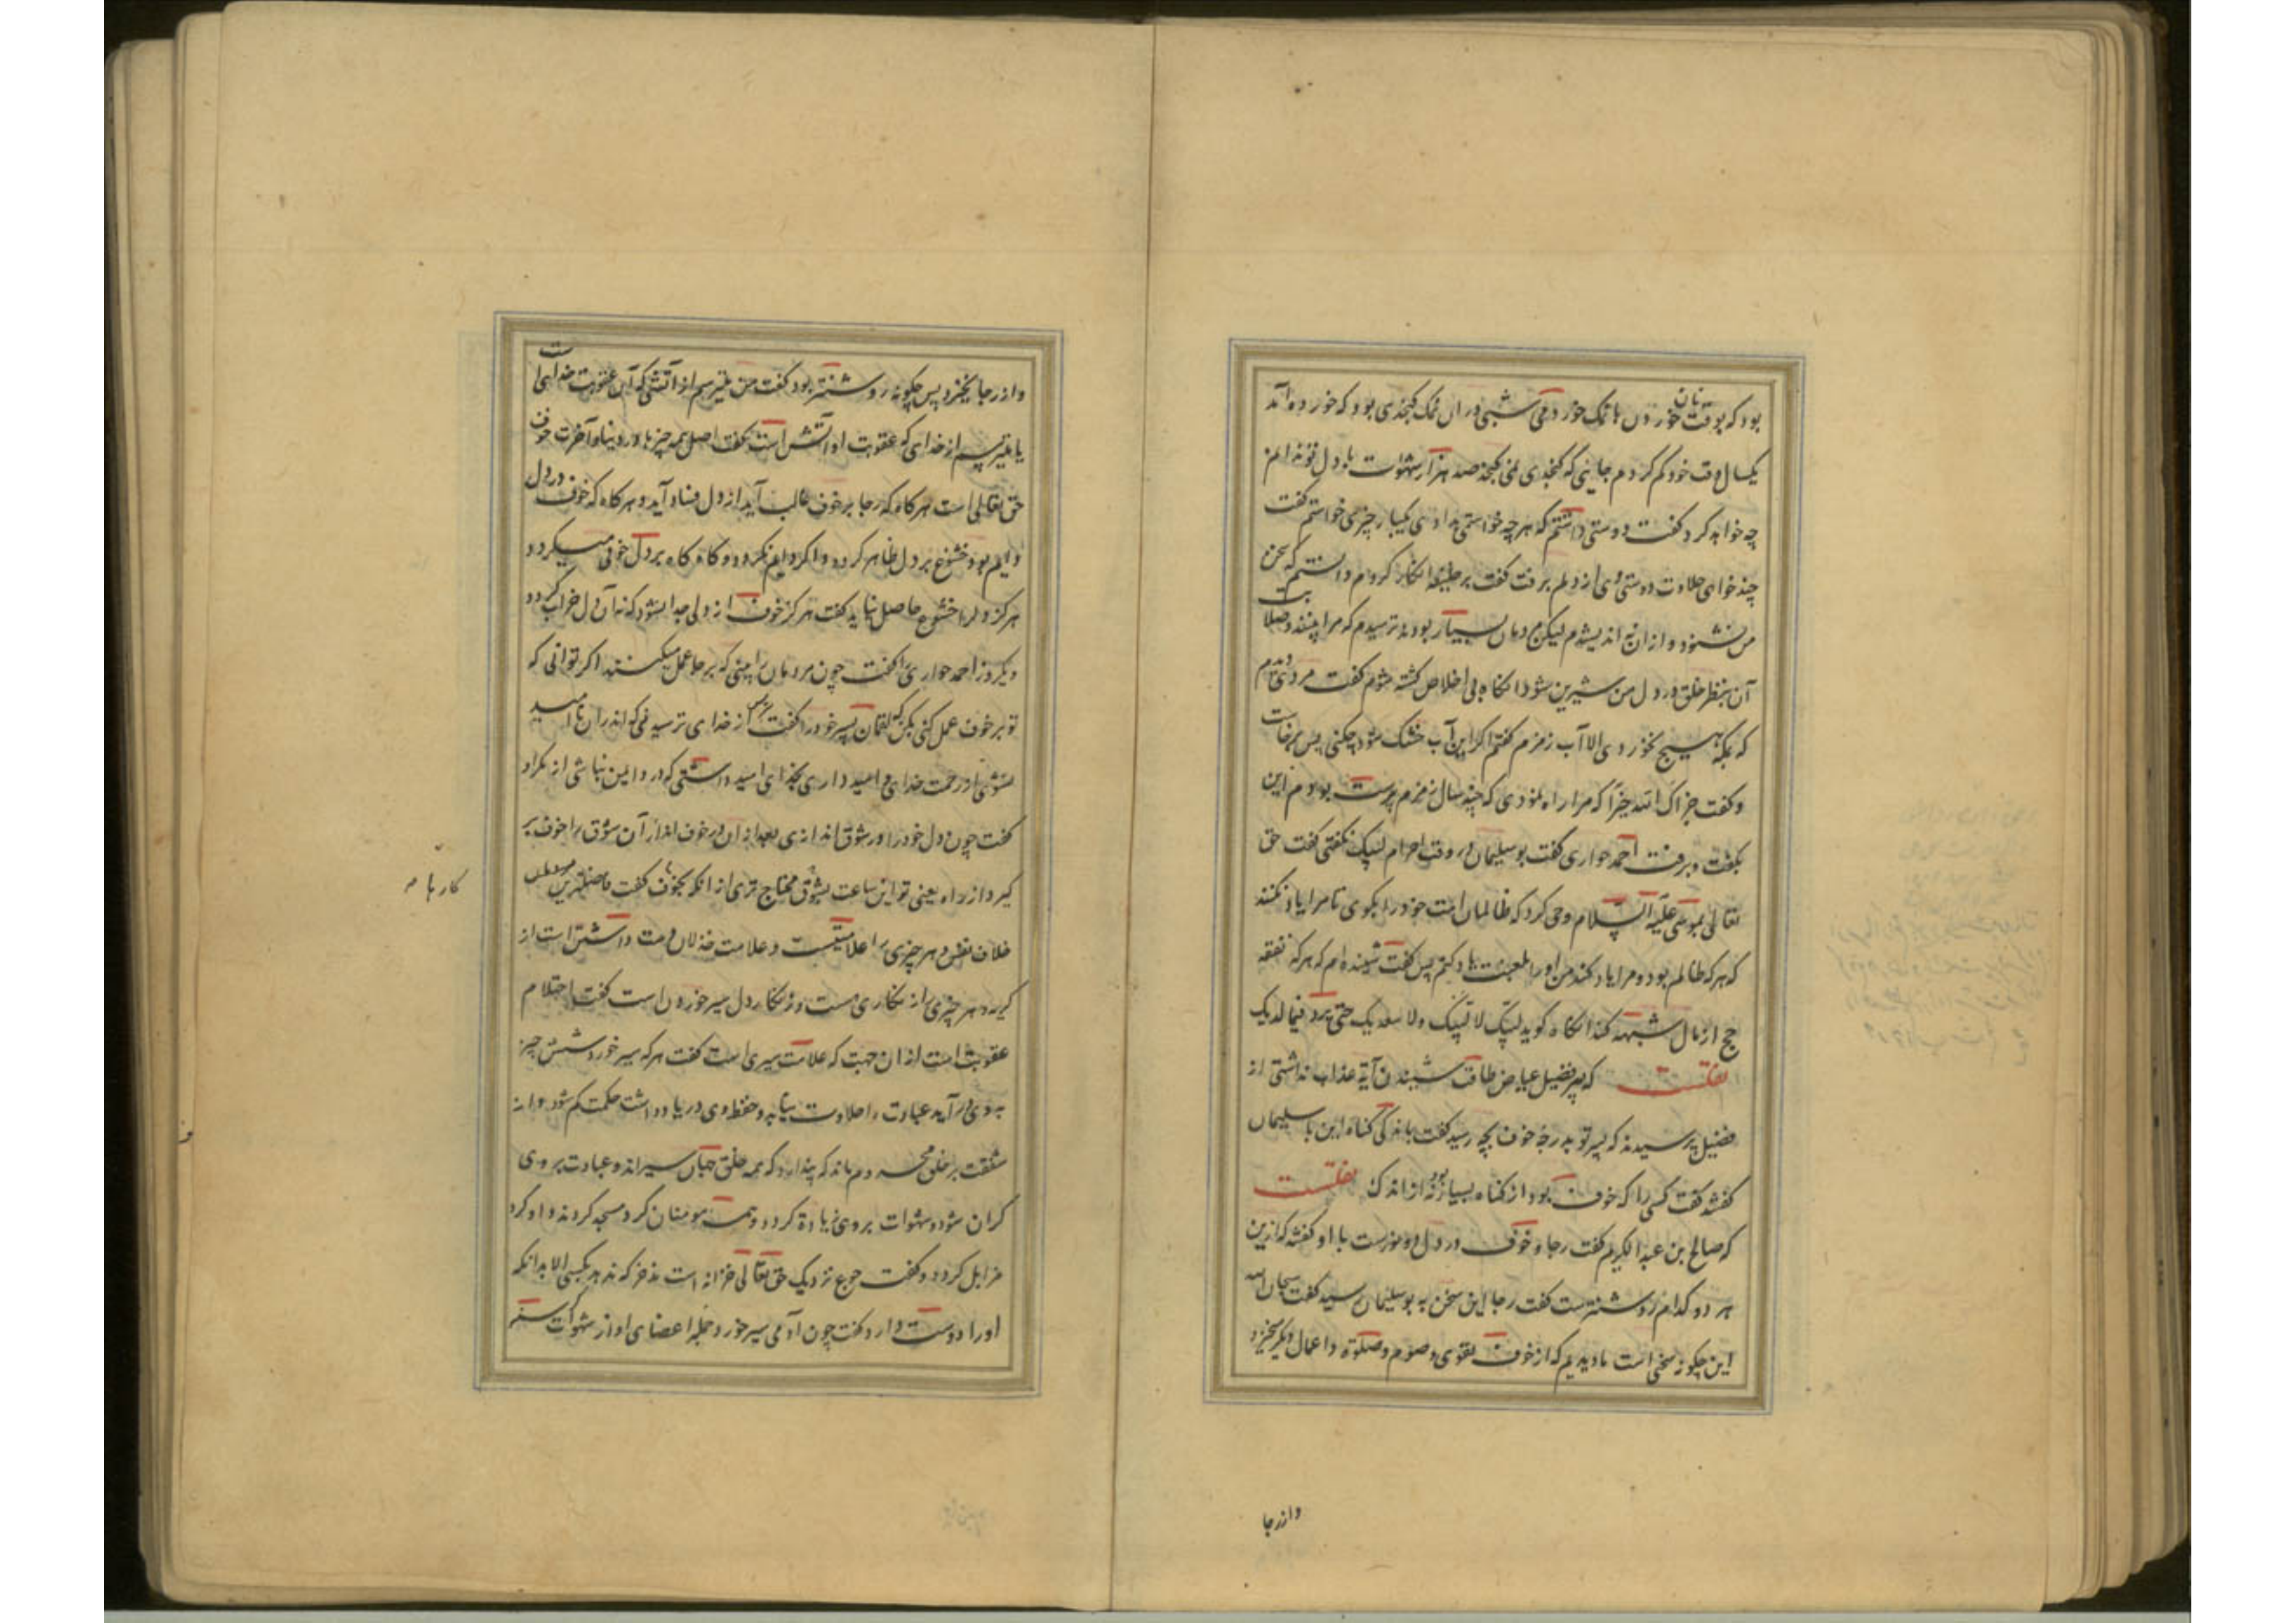 بود که بوقت نان خوردن با نمک خوردمی شبی در ان نمک کنجدی بود که خورده آمد
یکسال وقت خود کم کردم جایی که کنجدی نمی کنجد صد هزار شهوات با دل تو ندانم
چه خواهد کرد گفت دوستی داشتم که هر چه خواستمی بدادی یکبار چیزی خواستم گفت
چند خواهی حلاوت دوستی وی از دلم برفت گفت بر خلیفه انکار کردم دانستم که سخن
من نشنود و از ان نه اندیشدم لیکن مردمان بسیار بودند ترسیدم که مرا بینند و صلابت
آن بنظر خلق در دل من شیرین شود انکاه بی اخلاص کشته شوم گفت مردی دیدم
که بمکه هیچ نخوردی الا آب زمزم گفتم اکر این آب خشک شود چکنی پس برخاست
و گفت جزاک الله خیرا که مرا راه نمودی که چند سال زمزم پرست بودم این
بگفت و برفت احمد حواری گفت بوسلیمان در وقت احرام لبیک نگفتی گفت حق
تعالی بموسی علیه السلام وحی کرد که ظالمان امت خود را بگوی تا مرا یاد نکنند
که هر که ظالم بود و مرا یاد کند من او را بلعنت یاد کنم پس گفت شنیده ام که هر که نفقه
حج از مال شبهه کند انکاه گوید لبیک لا لبیک ولا سعدیک حتی ترد فیما لدیک
نقلست که پسر فضیل عیاض طاقت شنیدن آیة عذاب نداشتی از
فضیل پرسیدند که پسر تو بدرجه خوف بچه رسید گفت باندکی گناه این با سلیمان
گفتند گفت کسی را که خوف بود از گناه بسیار بود نه از اندک نقلست
که صالح بن عبد الکریم گفت رجا و خوف در دل دو نورست با او گفتند که ازین
هر دو کدام روشنترست گفت رجا این سخن به بوسلیمان رسید گفت سبحان الله
این چگونه سخنی است ما دیدیم که از خوف تقوی و صوم و صلوة و اعمال دیگر خیزد
وازرجا
و از رجا نخیزد پس چگونه روشنتر بود گفت من میترسم از آتشی که آن عقوبت خدای است
یا میترسم از خدای که عقوبت او آتش است گفت اصل همه چیزها در دنیا و آخرت خوف
حق تعالی است هرگاه که رجا بر خوف غالب آید از دل فساد آید و هرگاه که خوف در دل
دایم بود خشوع بر دل ظاهر گردد و اگر دایم نگردد و گاه گاه بر دل خوفی میگردد
هرگز دل را خشوع حاصل نیاید گفت هرگز خوف از دلی جدا نشود که نه آن دل خراب گردد
و یکروز احمد حواری را گفت چون مردمان را بینی که بر رجا عمل میکنند اگر توانی که
تو بر خوف عمل کنی بکن که لقمان پسر خود را گفت بترس از خدای ترسیدنی که اندران نا امید
نشوی از رحمت خدای و امید داری بخدای امید داشتنی که در وی ایمن نباشی از مکر او
گفت چون دل خود را در شوق اندازی بعد از ان در خوف انداز تا آن شوق را خوف بر
گیرد از راه یعنی تو این ساعت بشوق محتاج تری از انکه بخوف گفت فاضلترین
کارها
خلاف نفس و هر چیزی را علامتیست و علامت خذلان دست داشتن است از
گریه و هر چیزی را زنگاری هست و زنگار دل سیر خوردن است گفت احتلام
عقوبت است از ان جهت که علامت سیری است گفت هر که سیر خورد شش چیز
بوی در آید عبادت را حلاوت نیابد و حفظ وی در یادداشت حکمت کم شود و از
شفقت بر خلق محروم ماند که پندارد که همه خلق جهان سیراند و عبادت بر وی
گران شود و شهوات بر وی زیادة گردد و همه مومنان گرد مسجد گردند و او گرد
مزابل گردد و گفت جوع نزدیک حق تعالی خزانه است مدخر که ندهد بکسی الا بدانکه
او را دوست دارد گفت چون آدمی سیر خورد جمله اعضای او از شهوات گرسنه